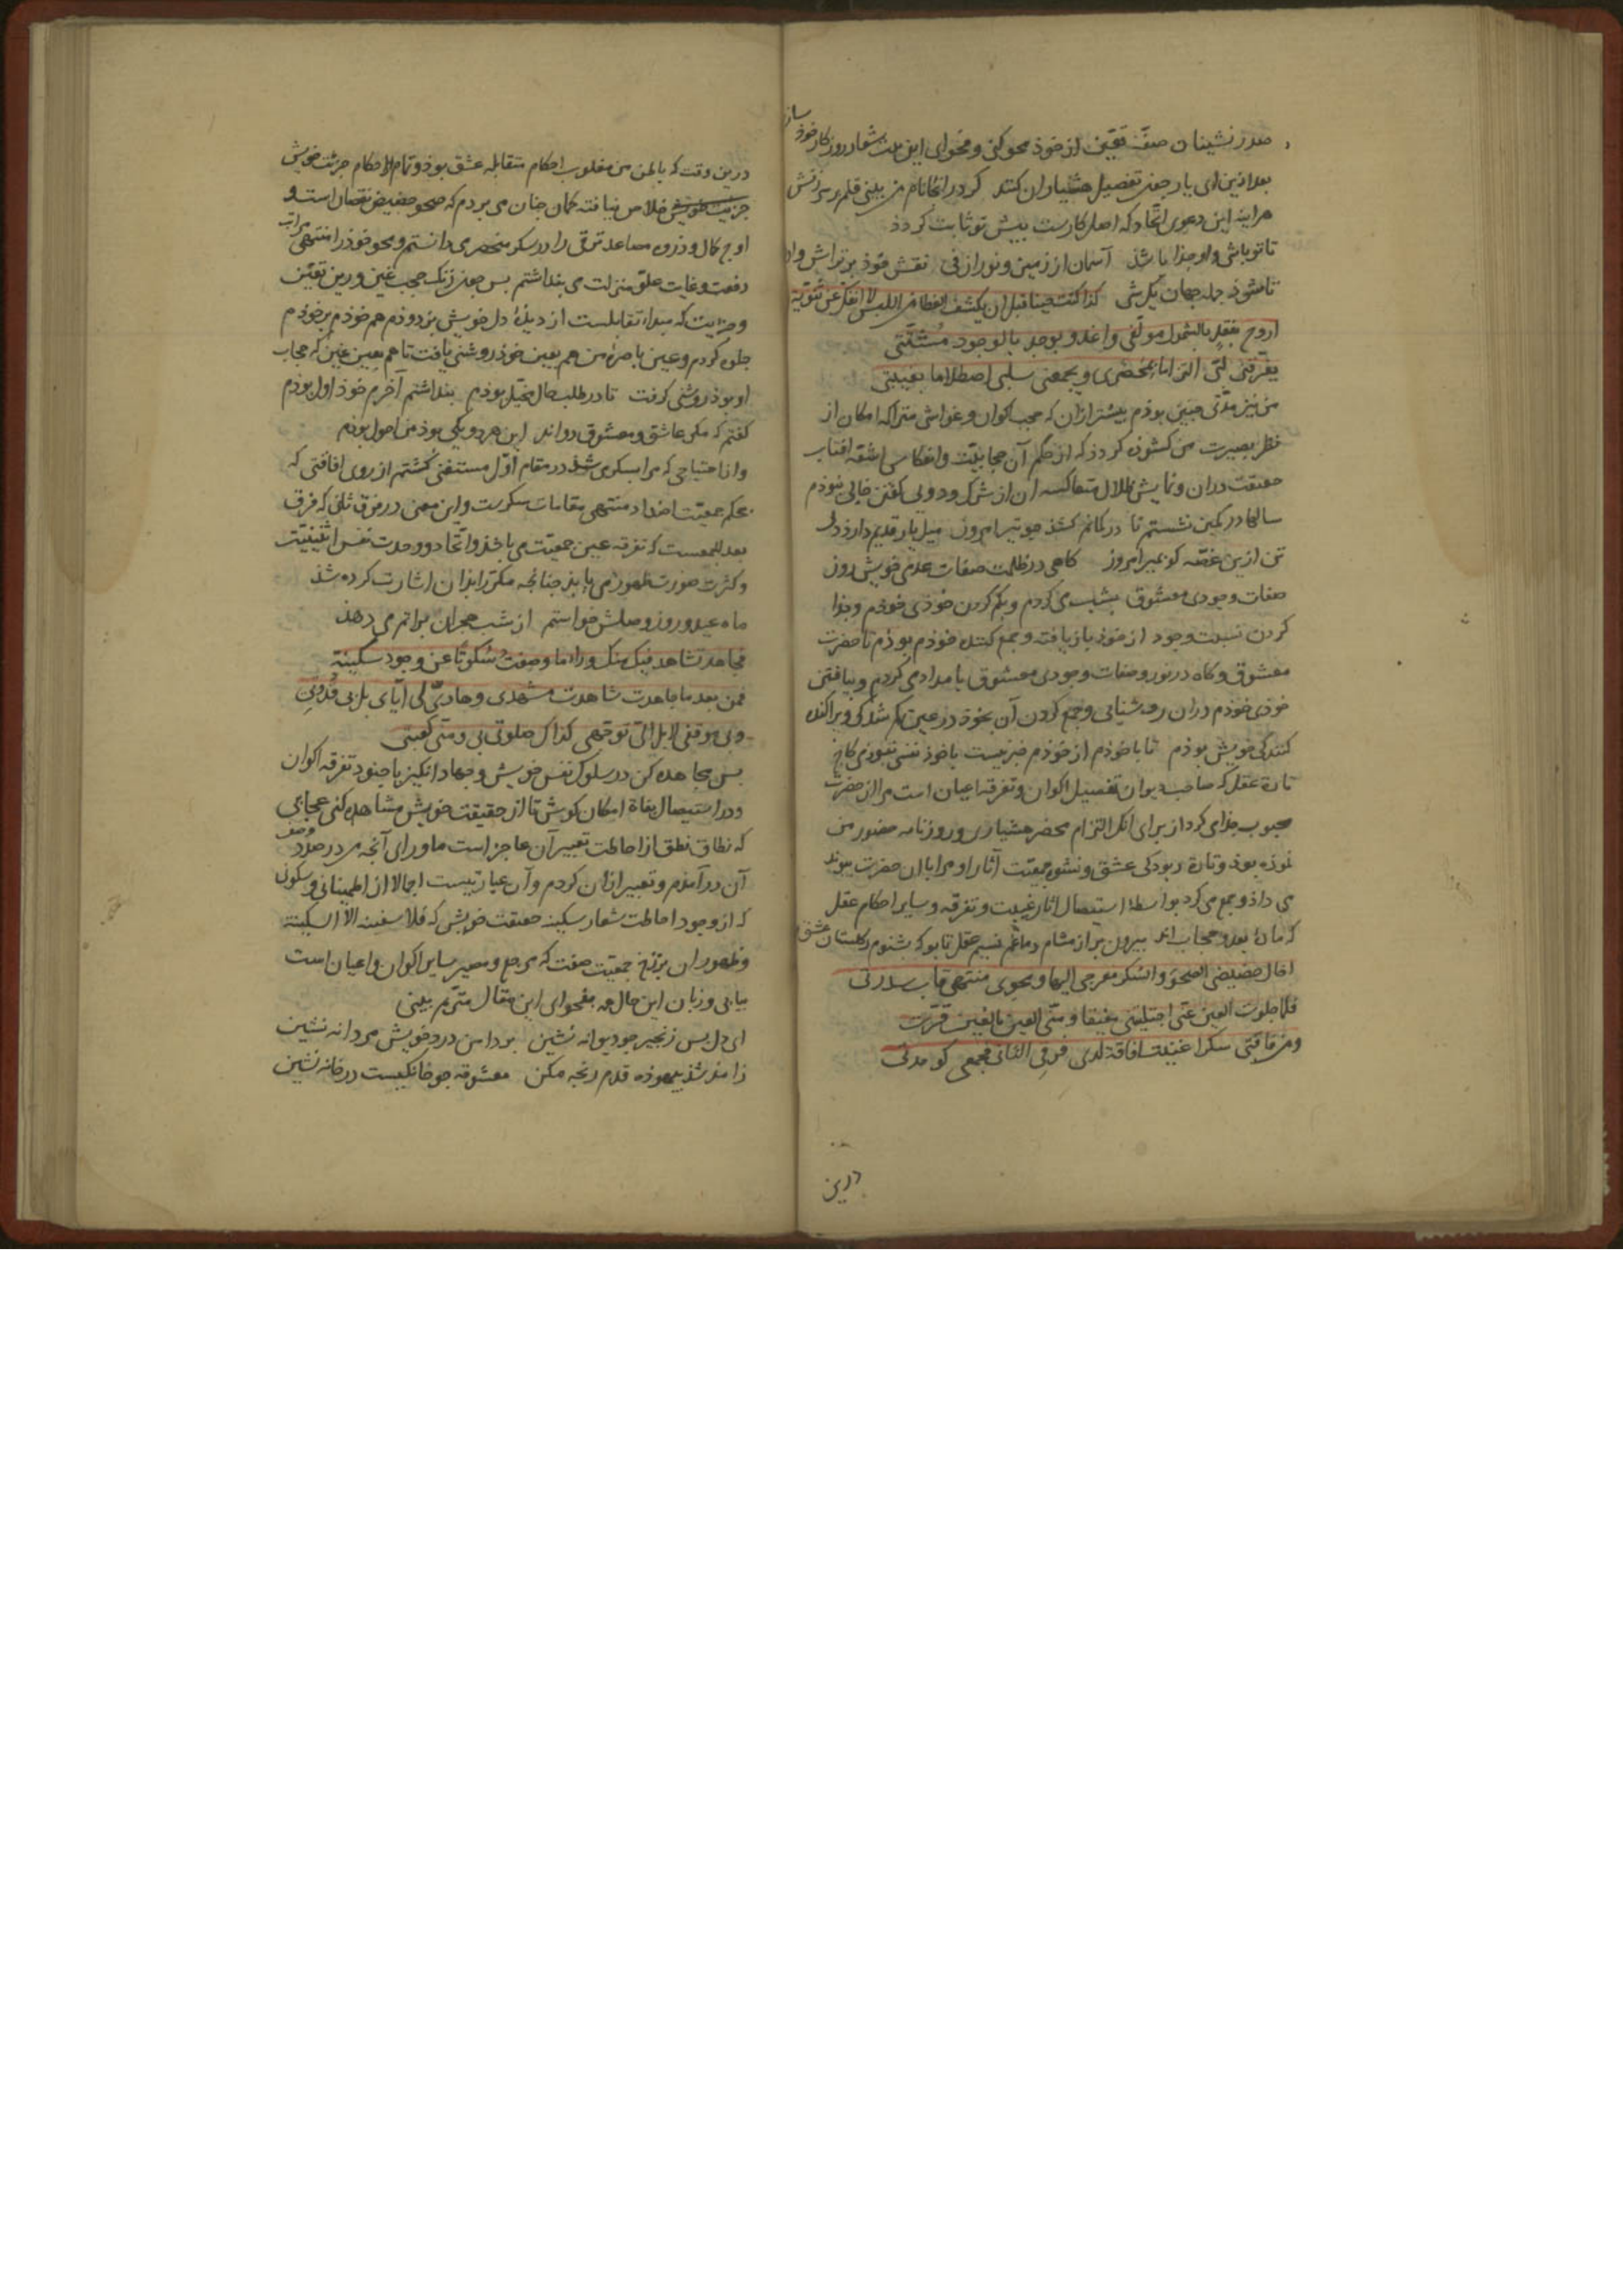 صدر نشینان صفّ تعیّن از خوذ محو کنی و فحوای این بیت شعار روزکار خوذ ساز
بعد ازین ای یار جعن تفصیل هشیاران کنند کر در انجا نام من بینی قلم بر سر زنش
هر اینه این دعوی اتّحاد که اصل کارست پیش تو ثابت کردد
تا تو باشی و او جذا باشذ آسمان از زمین و نور از فی نقش خوذ بر تراش و او
تا شوذ جمله جهان یک شی کذا کنت حینا قبل ان یکشف الغطا من اللبس لا انفک عن ثنویّة
اروح بفقد بالشهود مؤلّفی واغدو بوجد بالوجود مشتّتی
یفرّقنی لبّی التزاما بمحضری ویجمعنی سلبی اصطلاما بغیبتی
من نیز مدّتی چنین بوذم بیشتر ازان که حجب اکوان و غواشی متراکمه امکان از
نظر بصیرت من کشوذه کردذ که از حکم آن حجابیّت وانعکاس اشعّه افتاب
حقیقت دران و نمایش ظلال متعاکسه ان از شرک و دویی کفتن خالی نبوذم
سالها در کمین نشستم تا در کمانم کشذ جو تیر امروز میل یار قدیم دارذ دل
تن ازین غصّه کو بمیر امروز کاهی در ظلمت صفات عدمی خویش روز
صفات وجودی معشوق بشب می کردم و بکم کردن خوذی خوذم و جذا
کردن نسبت وجود از خوذ باز یافته و جمع کننده خوذم بوذم تا حضرت
معشوق و کاه در نور و صفات وجودی معشوق بامداد می کردم و بیافتن
خوذی خوذم دران روشنایی و جمع کردن آن بخوذ در عین کم شذکی و پراکنده
کنندکی خویش بوذم تا با خوذم از خوذم خبر نیست با خوذ نفسی نبوذمی کاج
تارة عقل که صاحب دیوان تفصیل اکوان و تفرقه اعیان است مرا از حضرت
محبوب جذا می کرد از برای انک التزام محضر هشیاری و روزنامه حضور من
نموذه بوذ و تارة ربودکی عشق و نشور جمعیّت آثار او مرا با ان حضرت پیوند
می داذ و جمع می کرد بواسطه استیصال اثار غیبت و تفرقه و سایر احکام عقل
که مادّه بعد و حجاب اند بیرون بر از مشام دماغم نسیم عقل تا بو که بشنوم ز کلستان عشق
اخال حضیضی الصحو والسکر معرجی الیها ومحوی منتهی قاب سدرتی
فلمّا جلوت الغین عنّی اجتلیتنی مفیقا ومنّی العین بالعین قرّت
ومن فاقتی سکرا غنیت افاقة لدی فرقی الثانی فجمعی کوحدتی
درین
درین وقت که باطن من مغلوب احکام متقابله عشق بوذ و تمام از احکام جزئیت خویش
خلاص نیافته کمان جنان می بردم که صحو حضیض نقصان است و
اوج کمال و ذروه مصاعد ترقّی را در سکر منحصر می دانستم و محو خوذ را منتهی مراتب
رفعت و غایت علوّ منزلت می بنداشتم بس جون زنک حجب غین و رین تعیّن
و جزئیت که مبداء تقابلست از دیدۀ دل خویش بزدودم هم خوذم بر خوذم
جلوه کردم و عین باصرۀ من هم بعین خوذ روشنی یافت تا هم بعین غین که حجاب
او بوذ روشنی کرفت تا در طلب حال بخیل بوذم بنداشتم آخرم خوذ اول بوذم
کفتم که مکر عاشق و معشوق دواند این هر دو یکی بوذ من احول بوذم
و از احتیاجی که مرا بسکری شذ در مقام اوّل مستغنی کشتم از روی افاقتی که
بحکم جمعیّت اضداد منتهی مقامات سکرست و این معنی در فرق ثانی که فرق
بعد الجمعست که تفرقه عین جمعیّت می باشذ و اتّحاد و وحدت نفس اثنینیّت
و کثرت صورت ظهور می یابذ جنانجه مکرّرا بذان اشارت کرده شذ
ماه عید و روز وصلش خواستم از شب هجران براتم می دهذ
فجاهد تشاهد فیک منک وراء ما وصفت سکوتا عن وجود سکینة
فمن بعد ما جاهدت شاهدت مشهدی وهادیّ لی ایّای بل بی قدوتی
وبی موقفی لا بل الیّ توجّهی کذاک صلوتی لی ومنّی کعبتی
بس مجاهده کن در سلوک نفس خویش و جهاد انکیز با جنود تفرقه اکوان
و در استیصال بغاة امکان کوش تا از حقیقت خویش مشاهده کنی عجایبی
که نطاق نطق از احاطت تعبیر آن عاجز است ماورای آنجه من در صدد وصف
آن درآمذم و تعبیر ازان کردم و آن عبارتیست اجمالا از اطمینانی و سکونی
که از وجود احاطت شعار سکینه حقیقت خویش که فلا سفینه الاّ السکینة
و ظهور ان برزخ جمعیّت صفت که مرجع و مصیر سایر اکوان و اعیان است
بیابی و زبان این حال هم بفحوای این مقال مترنّم بینی
ای دل بس زنجیر جو دیوانه نشین بر دامن درد خویش مردانه نشین
ز آمد شذ بیهوذه قدم رنجه مکن معشوقه جو خانکیست در خانه نشین